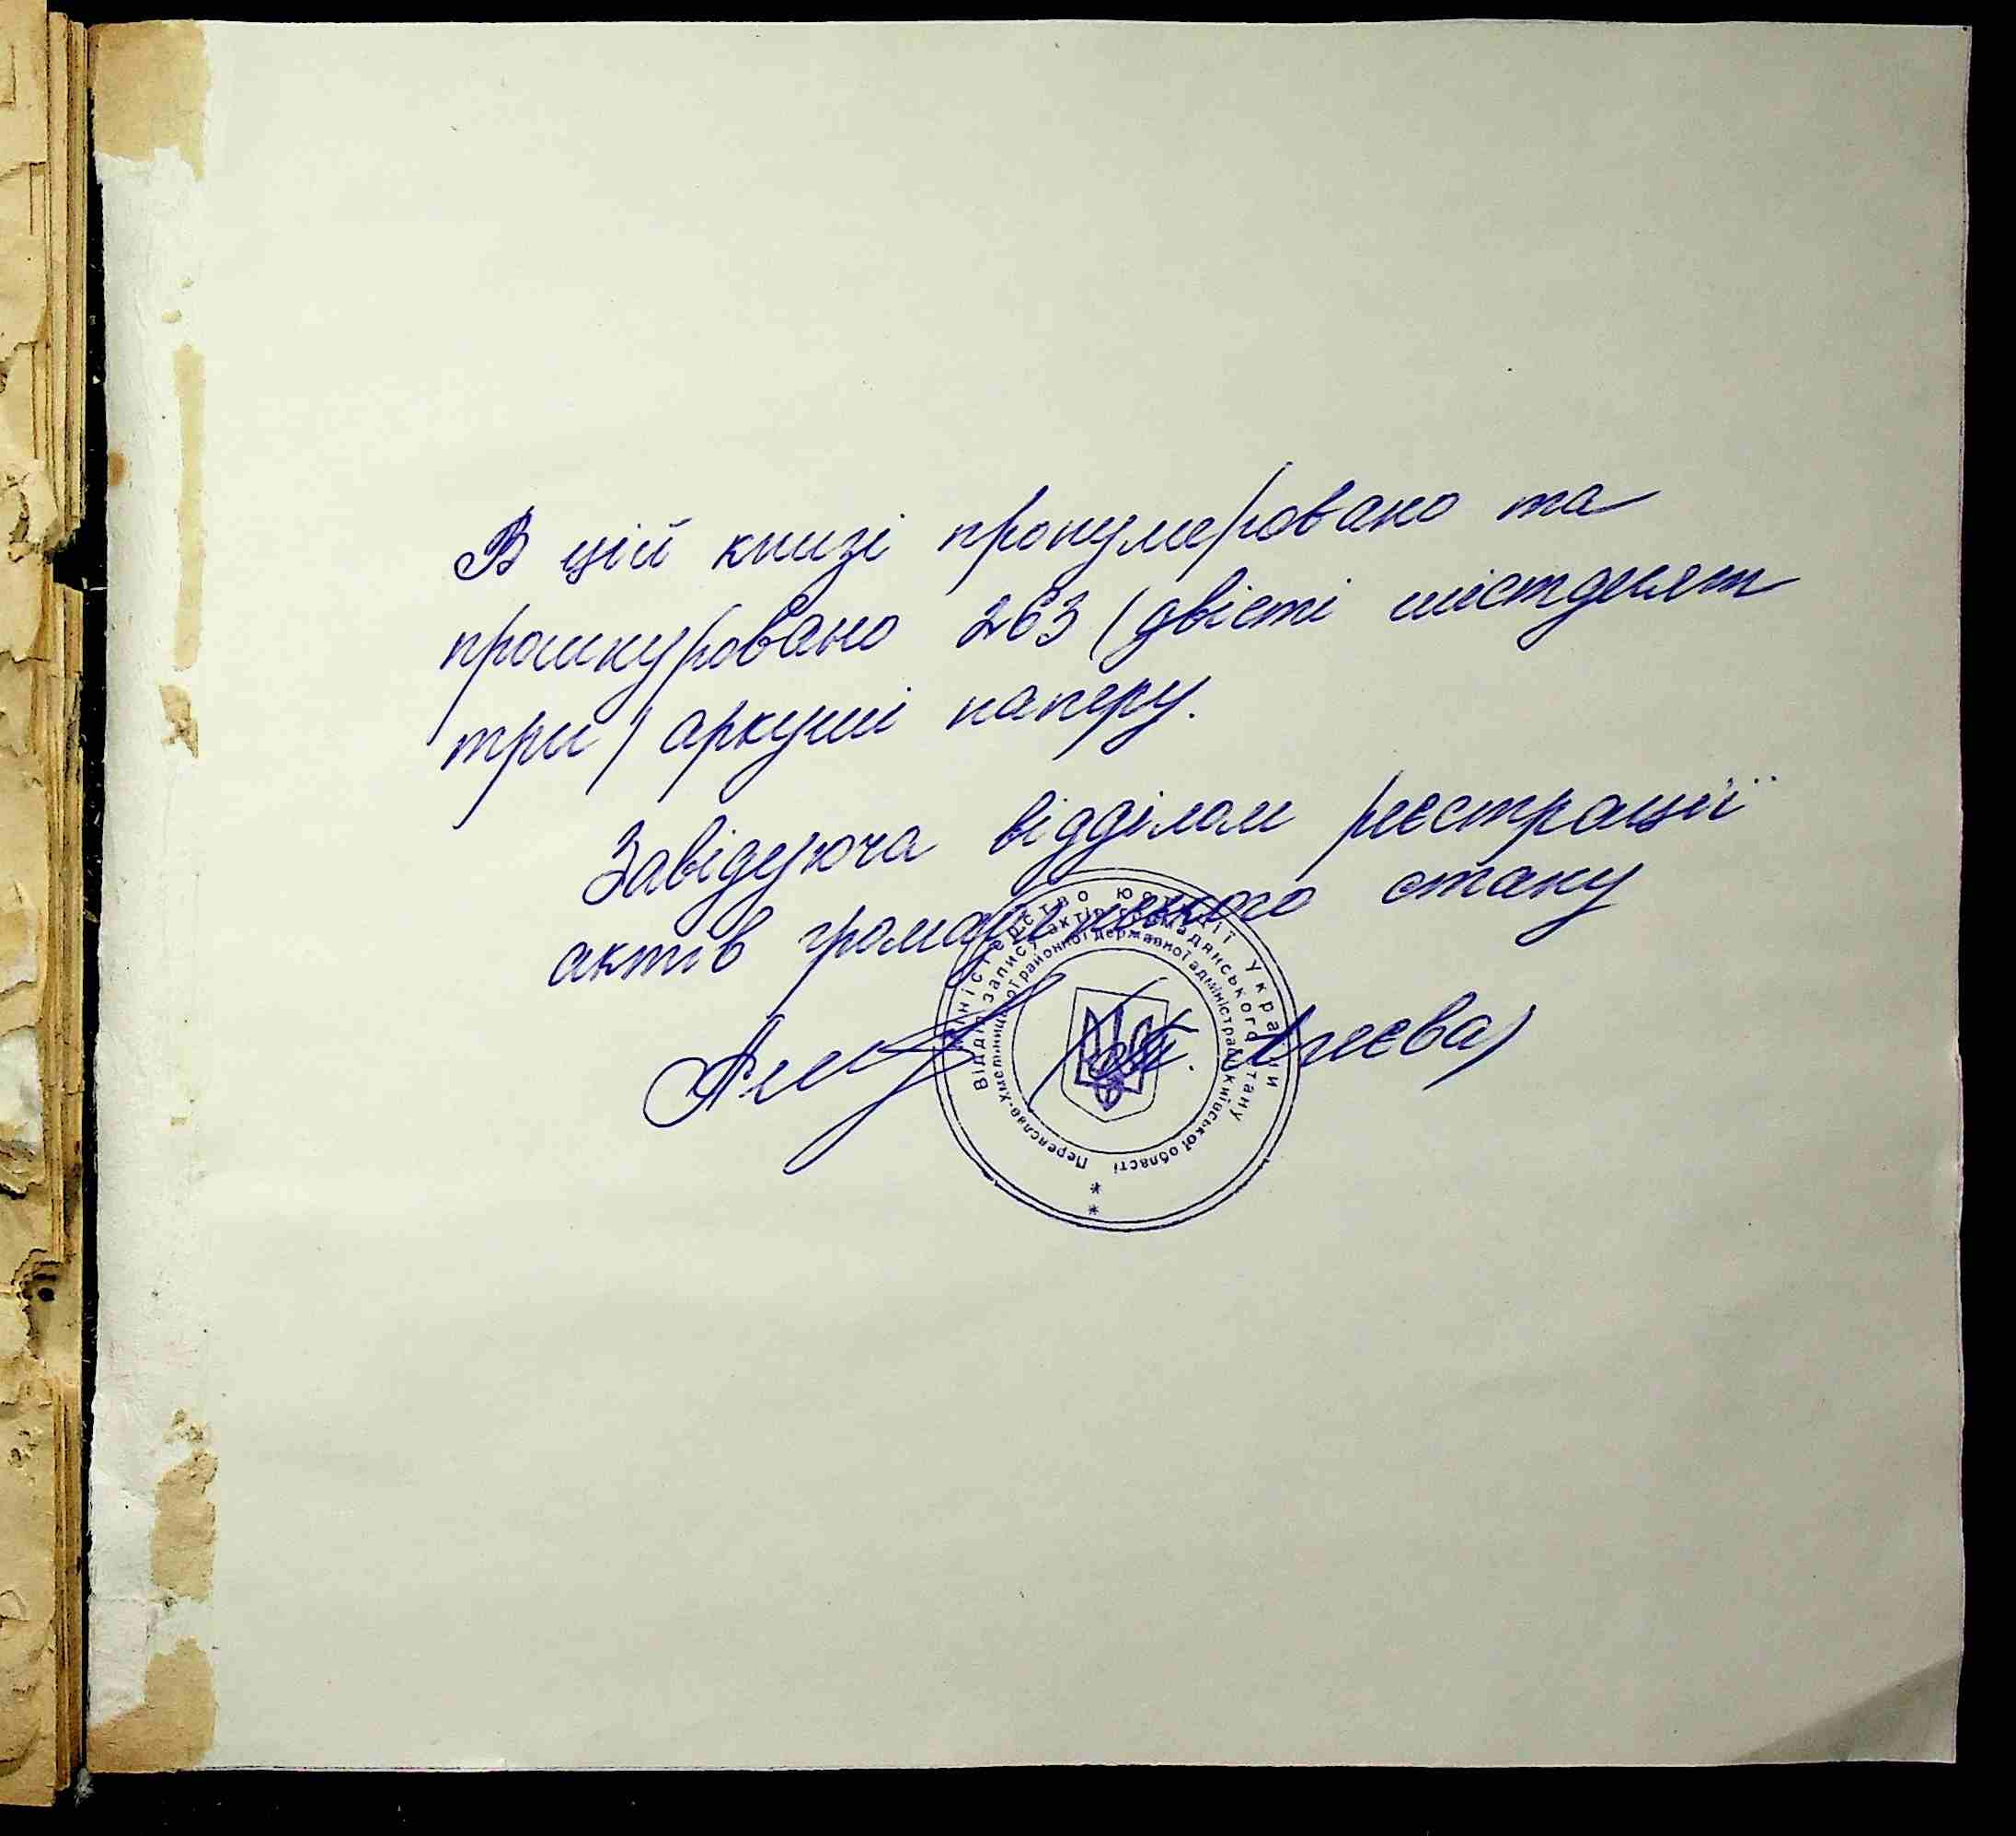 В цій книзі пронумеровано та
прошнуровано 263 (двісті шістдесят
три) аркуші паперу.
Завідуюча відділом реєстрації
актів громадянського стану
Міністерство юстиції України
Відділ запису актів громадянського стану
Переяслав-Хмельницької районної державної адміністрації Київської області
* *